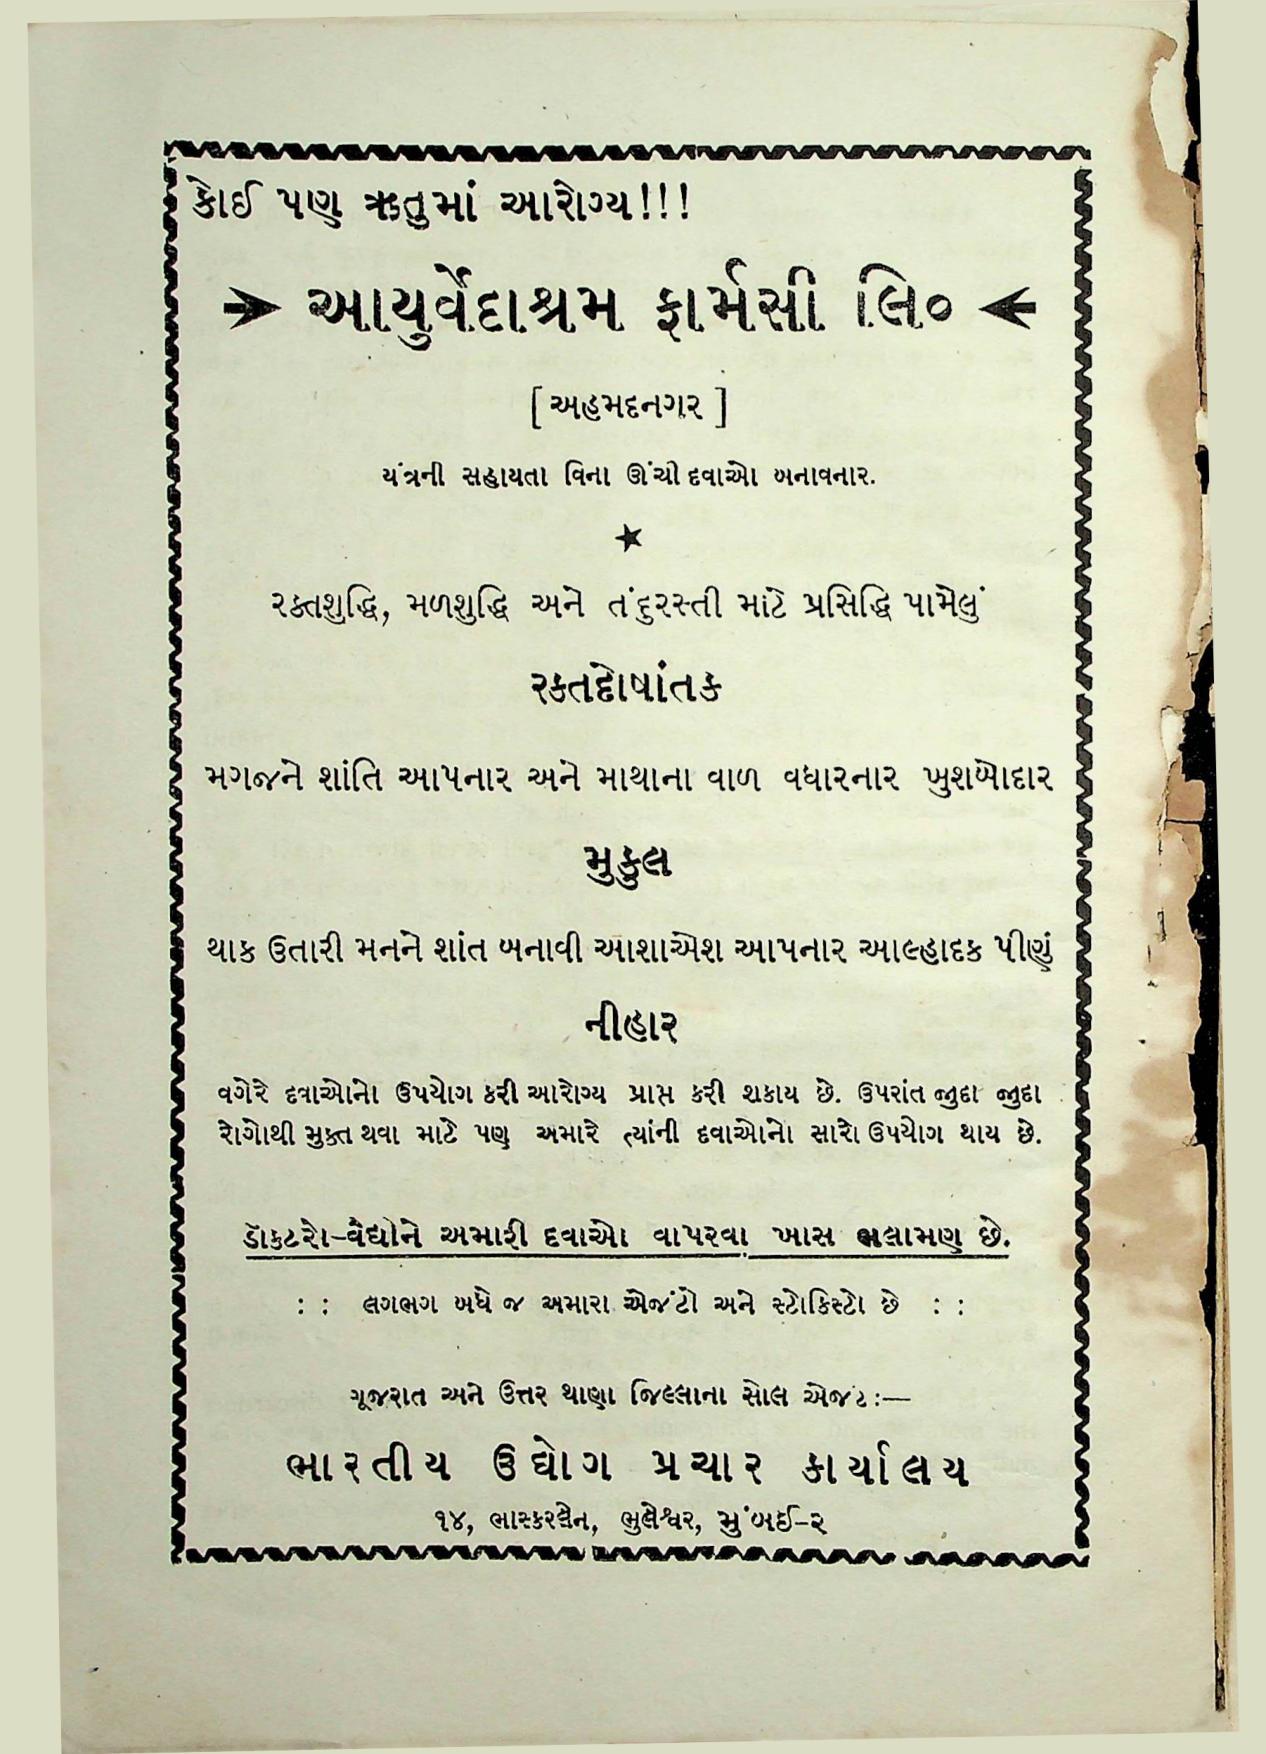 કોઈ પણ ઋતુમાં આરોગ્ય!!!
આયુર્વેદાશ્રમ ફાર્મસી લિ૦
[ અહમદનગર ]
યંત્રની સહાયતા વિના ઊંચી દવાઓ બનાવનાર.
રક્તશુદ્ધિ, મળશુદ્ધિ અને તંદુરસ્તી માટે પ્રસિદ્ધિ પામેલું
રક્તદોષાંતક
મગજને શાંતિ આપનાર અને માથાના વાળ વધારનાર ખુશબોદાર
મુકુલ
થાક ઉતારી મનને શાંત બનાવી આશાએશ આપનાર આલ્હાદક પીણું
નીહાર
વગેરે દવાઓનો ઉપયોગ કરી આરોગ્ય પ્રાપ્ત કરી શકાય છે. ઉપરાંત જુદા જુદા
રોગોથી મુક્ત થવા માટે પણ અમારે ત્યાંની દવાઓનો સારો ઉપયોગ થાય છે.
ડૉકટરો–વૈદ્યોને અમારી દવાઓ વાપરવા ખાસ ભલામણ છે.
: : લગભગ બધે જ અમારા એજંટો અને સ્ટોકિસ્ટો છે : :
ગૂજરાત અને ઉત્તર થાણા જિલ્લાના સોલ એજંટ:—
ભારતીય ઉદ્યોગ પ્રચાર કાર્યાલય
૧૪, ભાસ્કરલેન, ભુલેશ્વર, મુંબઈ–૨